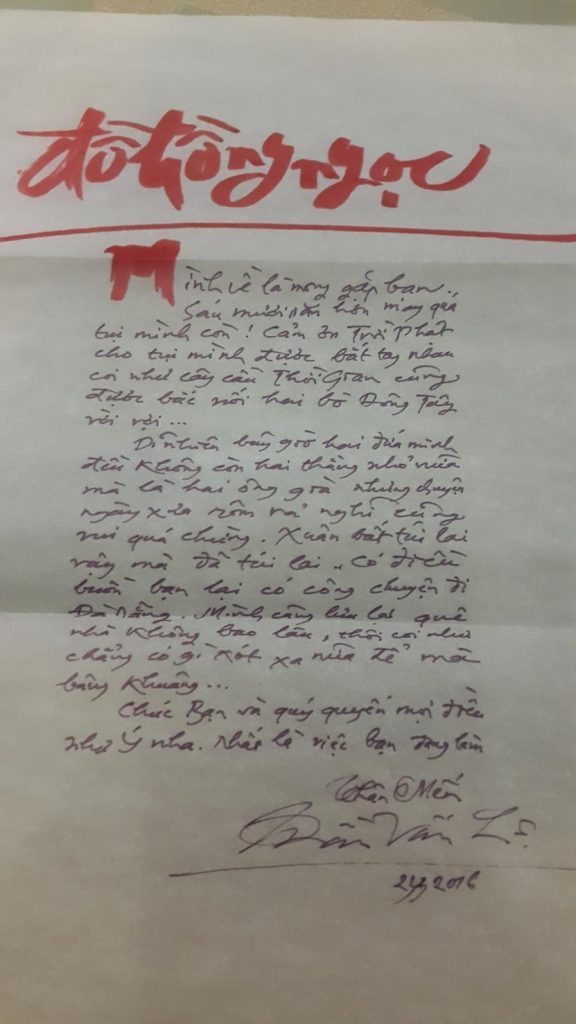 đỗ hồng ngọc
Mình về là mong gặp bạn..,
Sáu mươi năm hơn may quá
tụi mình còn! Cảm ơn Trời Phật
cho tụi mình được bắt tay nhau
coi như cây cầu Thời Gian cũng
được bắc nối hai bờ Đông Tây
vời vợi...
Dĩ nhiên bây giờ hai đứa mình
đều không còn hai thằng nhỏ nữa
mà là hai ông già nhưng chuyện
ngày xưa rôm rả nghĩ cũng
vui quá chừng. Xuân bất tái lai
vậy mà đã tái lai.. Có điều
buồn bạn lại có công chuyện đi
Đà Nẵng. Mình cũng lưu lại quê
nhà không bao lâu, thôi coi như
chẳng có gì xót xa nữa để mà
bâng khuâng...
Chúc Bạn và quý quyến mọi điều
như Ý nha. Nhất là việc bạn đang làm
Thân Mến
Trần Vấn Lệ.
2016